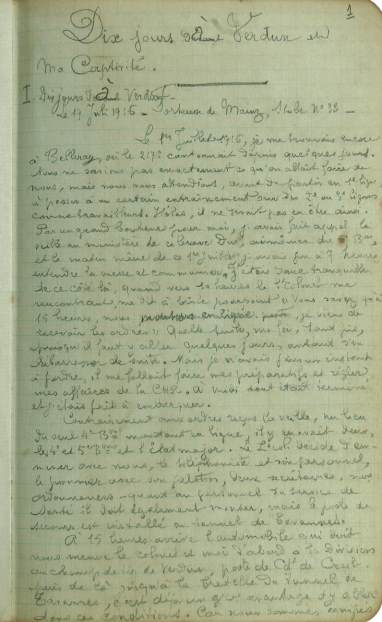 1
Dix jours devant Verdun et
Ma Captivité.
I Dix jours devant Verdun
Le 19 Juillet 1916 - Forteresse de Mainz, Stube N° 33 -
Le 1er Juillet 1916, je me trouvais encore
à Belleray, où le 217e cantonnait depuis quelques jours.
Nous ne savions pas exactement ce qu'on allait faire de
nous, mais nous nous attendions, avant de partir en 1ère ligne
à passer à un certain entraînement sur les 2e ou 3e lignes
comme travailleurs. Hélas, il ne devait pas en être ainsi.
Par un grand bonheur pour moi, j'avais fait appel la
veille au ministère de aumônier du Bon
et le matin même de ce 1er Juillet, j'avais pu à 7 heures
entendre la messe et communier. J'étais donc tranquille
de ce côté là, quand vers heures le Colonel me
rencontrant, me dit à brûle pourpoint « Vous savez qu'à
15 heures, nous partons, je viens de
recevoir les ordres » Quelle tuile,
puisqu'il faut y aller quelques jours, autant s'en
débarrasser de suite. Mais je n'avais pas un instant
à perdre, il me fallait faire mes préparatifs et régler
mes affaires de la CHR. A midi tout était terminé
et j'étais prêt à embarquer.
Contrairement aux ordres reçus la veille, au lieu
du seul 4e Bon montant en ligne, il y en avait deux,
le 4e et 5e Bon et l'État major. Le Col. décide d'em-
mener avec nous, le téléphoniste et son personnel,
le pionnier avec son peloton, deux secrétaires, nos
ordonnances - quant au personnel du service de
santé il doit également monter, mais le poste de
secours est installé au tunnel de Tavannes.
A 15 heures arrive l'automobile qui doit
nous mener le colonel et moi d'abord à la Division
au champ de tir de Verdun, poste de Ct de
puis de là jusqu'à la du tunnel de
Tavannes, c'est déjà un gros avantage d'y aller
dans ces conditions. Car nous sommes